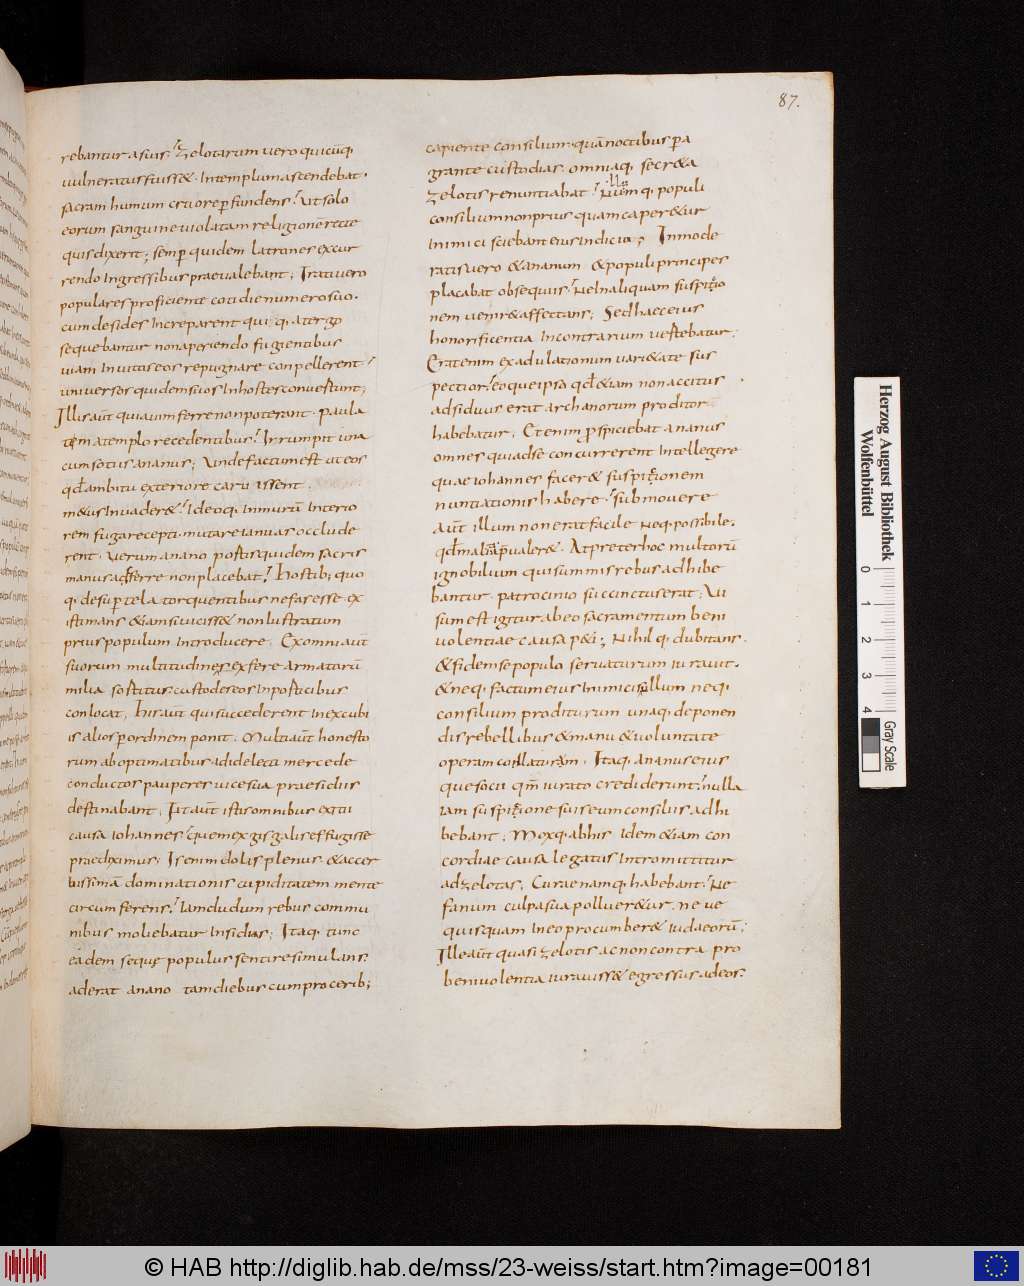 87.
rebantur a suis; Zelotarum vero quicūq;
vulneratus fuiss&. In templum ascendebat.
sacram humum cruore perfundens; Ut solo
eorum sanguine violatam religionē recte
quis dixerit; semp quidem latrones excur
rendo Ingressibus praevalebant; Irati vero
populares proficiente cotidie numero suo.
cum desides Increparent qui q; a tergo
sequebantur non aperiendo fugientibus
viam Invitas eos repugnare conpellerent
universos quidem suos In hostes convertunt;
Illi aūt qui a vim ferre non poterant. paula
tem a templo recedentibus; Irrumpit una
cum sotiis ananus; Unde factum est ut eos
qd ambitu exteriore caruissent
m&us Invader&; Ideoq; In murū Interio
rem fuga recepti mature ianuas occlude
rent. Verum anano portis quidem sacris
manus adferre non placebat; Hostib; quo
q; desup tela torquentibus nefas esse ex
istimans &iamsi viciss& non lustratum
prius populum Introducere; Ex omni aūt
suorum multitudine sex fere armatorū
milia sortitus custodes eos In porticibus
conlocat; Hi raūt qui succederent In excubi
is alios p ordinem ponit; Multi aūt honesto
rum ab optimatibus ad id electi mercede
conductos pauperes vice sua praesidiis
destinabant; Fit aūt istis omnibus exitii
causa iohannes; Quem ex gisgalis effugisse
praediximus; Is enim dolis plenus. &acer
bissimā dominationis cupiditatem mente
circumferens; Iamdudum rebus commu
nibus moliebatur Insidias; Itaq; tunc
eadem seque populus sentire simulans.
aderat anano tam diebus cum procerib;
capiente consilium. quā noctibus pa
grante custodias. omniaq; secr&a
zelotis renuntiabat; Nullumq; populi
consilium non prius quam caper&ur
inimici sciebant eius Indicia; Inmode
ratis vero & ananum & populi principes
placabat obsequiis; Ne In aliquam suspitio
nem venir& affectans; Sed haec eius
honorificentia In contrarum vertebatur;
Erat enim ex adulationum vari&ate sus
pectior; eoque ipso qd &iam non accitus
adsiduus erat archanorum proditor
habebatur; Etenim pspiciebat ananus
omnes qui ad se concurrerent Intellegere
quae iohannes facer& suspitionem
nuntiationis habere; submovere
aūt illum non erat facile Neq; possibile.
qd malitia pvaler&. At preter hoc multorū
ignobilium qui summis rebus adhibe
bantur. patrocinio succinctus erat; Vi
sum est igitur ab eo sacramentum beni
volentiae causa p&i; Nihil q; dubitans.
& fidem se populo servaturum iuravit.
& neq; factum eius Inimicis ullum neq;
consilium proditurum una q; deponen
dis rebellibus & manu & voluntate
operam conlaturum. Itaq; ananus eius
que socii qm iurato crediderunt; nulla
iam suspitione suis eum consiliis adhi
bebant; Mox q; ab his Idem &iam con
cordiae causa legatus Intromittitur
ad zelotas; Curae namq; habebant; Ne
fanum culpa sua polluer&ur. ne ve
quisquam In eo procumber& iudaeorū;
Ille aūt quasi zelotis ac non contra pro
benivolentia iuraviss& egressus ad eos.
Herzog August Bibliothek
Wolfenbüttel
0 1 2 3 4
Gray Scale
© HAB http://diglib.hab.de/mss/23-weiss/start.htm?image=00181